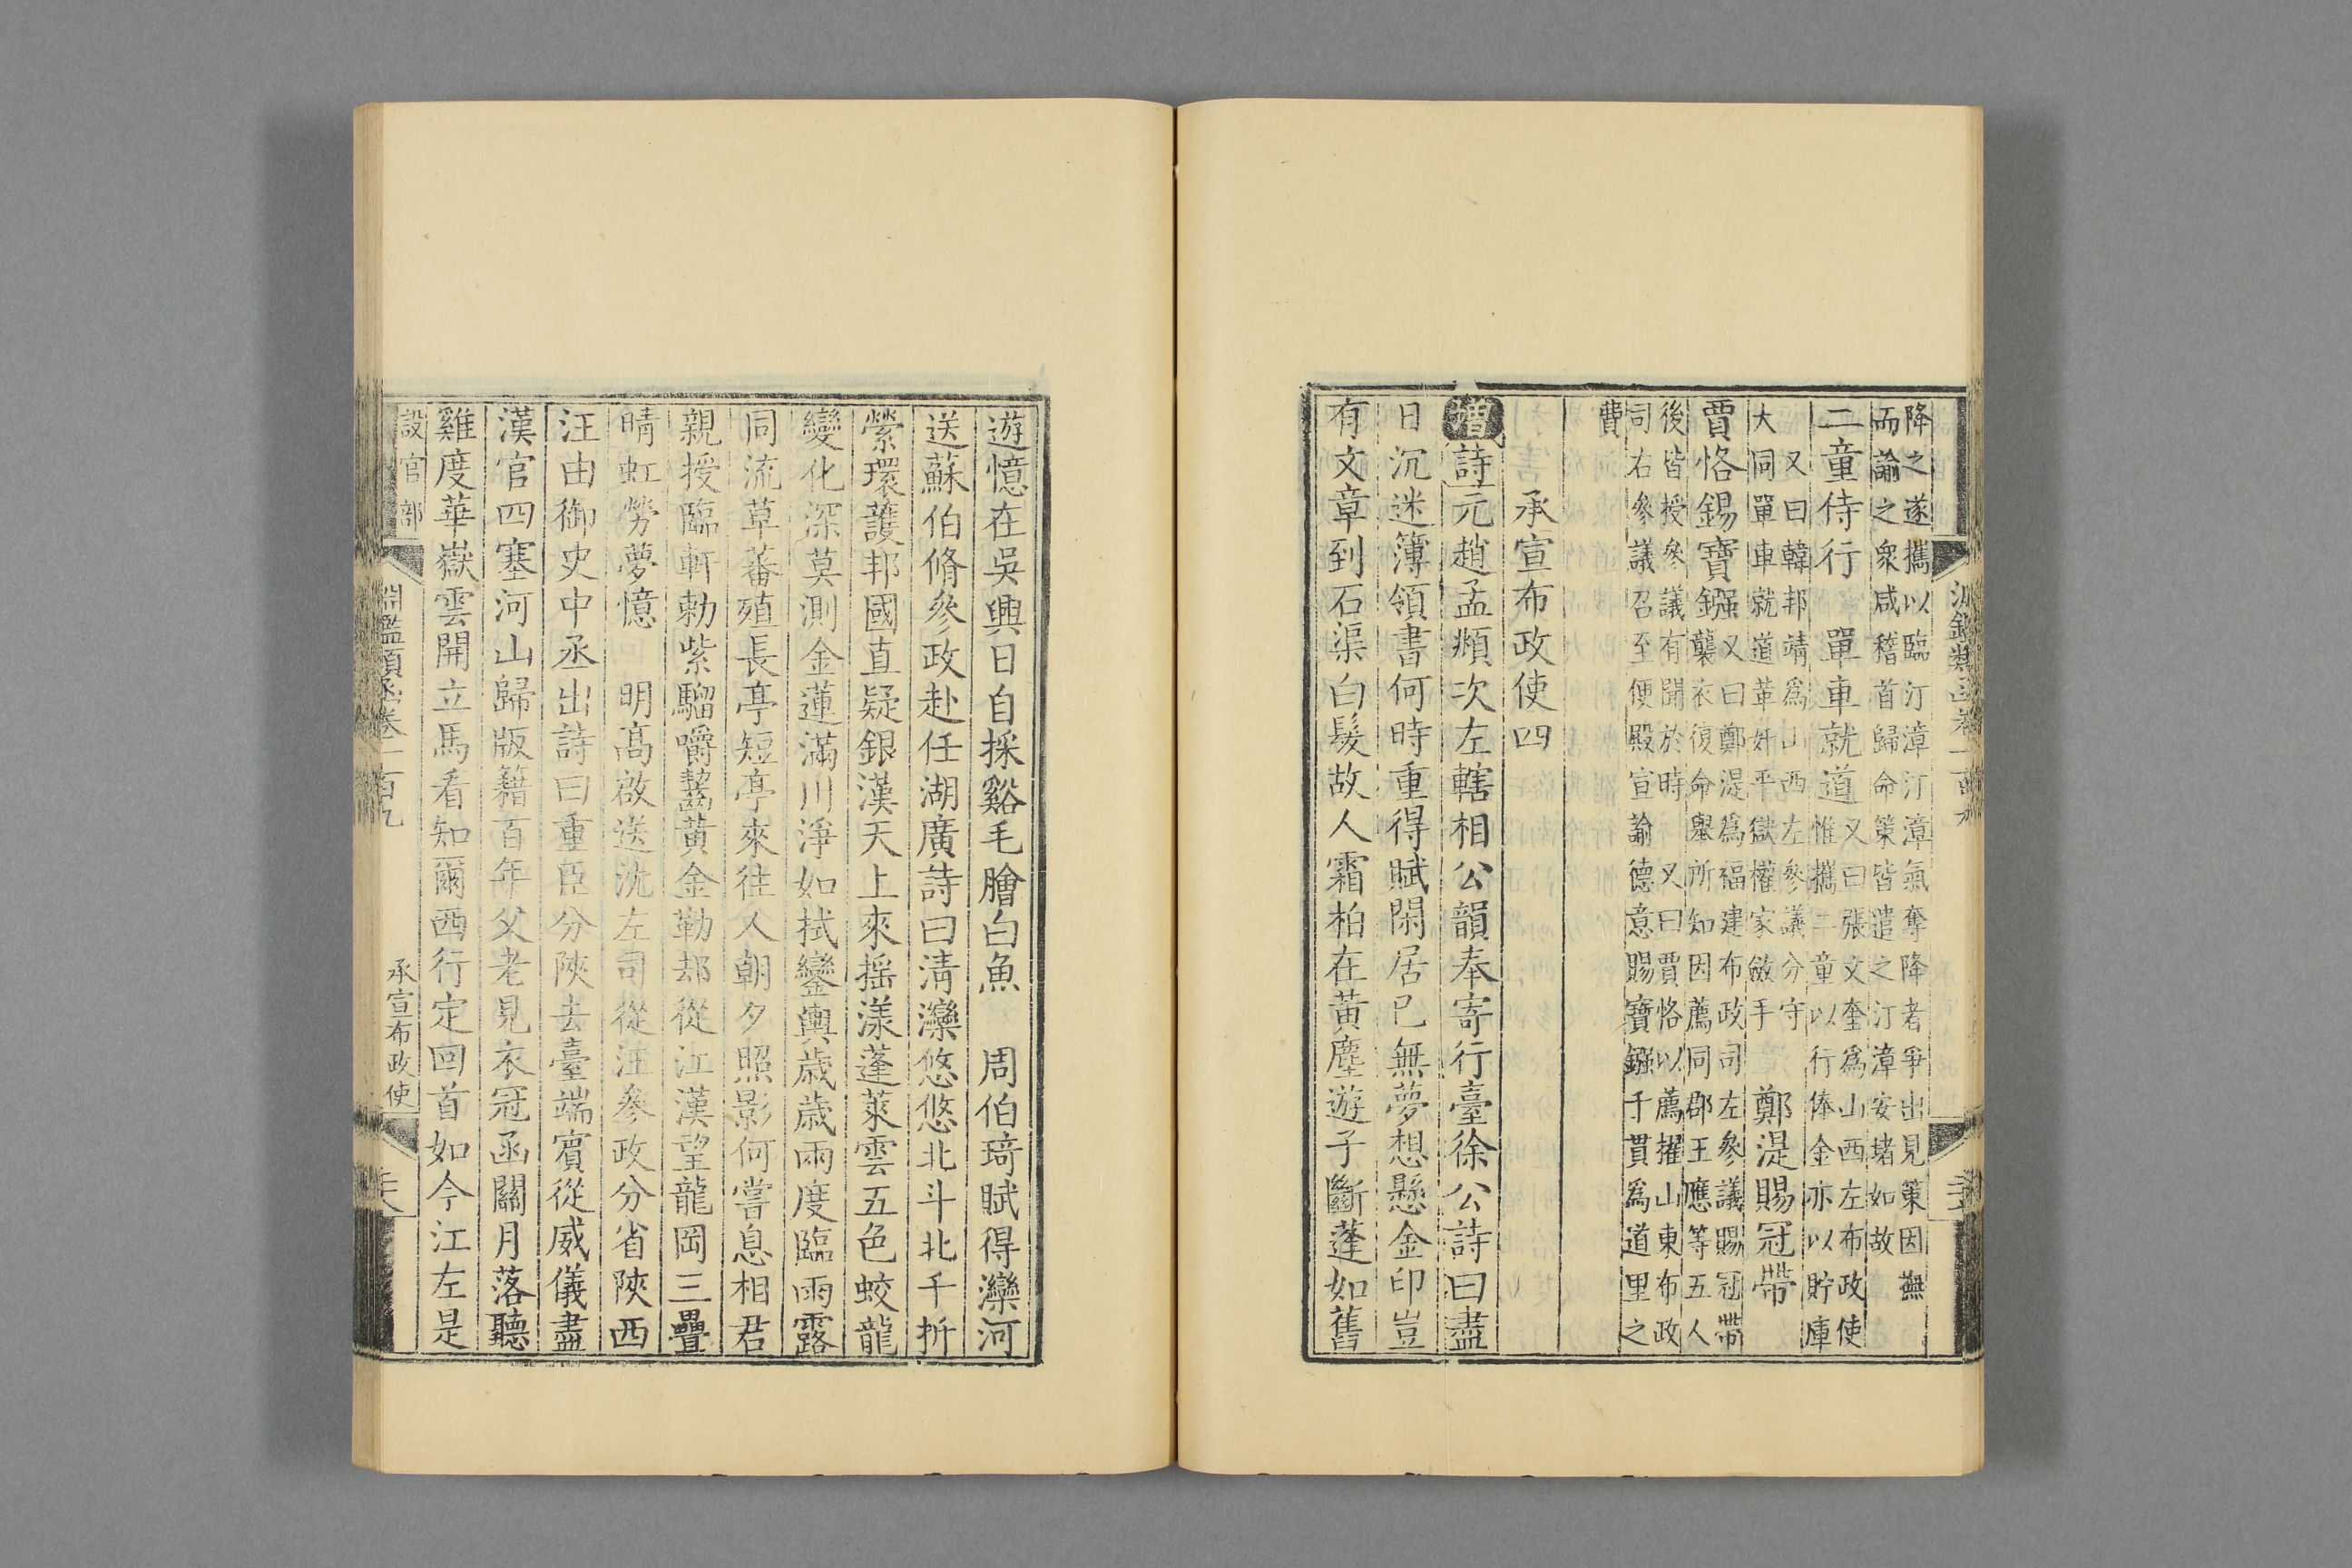 淵鑑類函卷一百九
降之遂攜以臨汀漳汀漳氣奪降者爭出見策因撫
而諭之衆咸稽首歸命策皆遣之汀漳安堵如故
二童侍行 單車就道 又曰張文奎爲山西左布政使
惟攜二童以行俸金亦以貯庫
又曰韓邦靖爲山西左參議分守
大同單車就道革奸平獄權家斂手 鄭湜賜冠帶
賈恪錫寶鏹 又曰鄭湜爲福建布政司左參議賜冠帶
襲衣復命舉所知因薦同郡王應等五人
後皆授參議有聞於時 又曰賈恪以薦擢山東布政
司右參議召至便殿宣諭德意賜寶鏹千貫爲道里之
費
承宣布政使四
增詩元趙孟頫次左轄相公韻奉寄行臺徐公詩曰盡
日沉迷簿領書何時重得賦閑居已無夢想懸金印豈
有文章到石渠白髮故人霜柏在黃塵遊子斷蓬如舊
遊憶在吳興日自採谿毛膾白魚 周伯琦賦得灤河
送蘇伯脩參政赴任湖廣詩曰清灤悠悠北斗北千折
縈環護邦國直疑銀漢天上來搖漾蓬萊雲五色蛟龍
變化深莫測金蓮滿川淨如拭鑾輿歲歲兩度臨雨露
同流草蕃殖長亭短亭來往人朝夕照影何嘗息相君
親授臨軒勅紫騮嚼齧黃金勒却從江漢望龍岡三疊
晴虹勞夢憶 明高啟送沈左司從汪參政分省陝西
汪由御史中丞出詩曰重臣分陝去臺端賓從威儀盡
漢官四塞河山歸版籍百年父老見衣冠函關月落聽
雞度華嶽雲開立馬看知爾西行定回首如今江左是
設官部 淵鑑類函卷一百九 承宣布政使